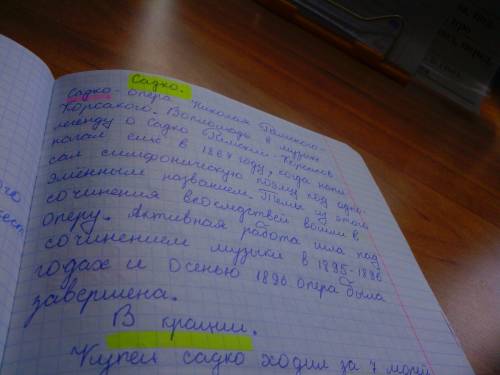 Садко.
Садко - опера Николая Римского-
Корсакого. Воплощать в музыке
легенду о Садко Римский-Корсаков
начал ещё в 1867 году, когда напи-
сал симфоническую поэму под одно-
имённым названием. Темы из этого
сочинения впоследствей вошли в
оперу. Активная работа шла над
сочинением музыки в 1895-1896
годах и осенью 1896 опера была
завершена.
В кратции.
Купец садко ходил за 7 морей